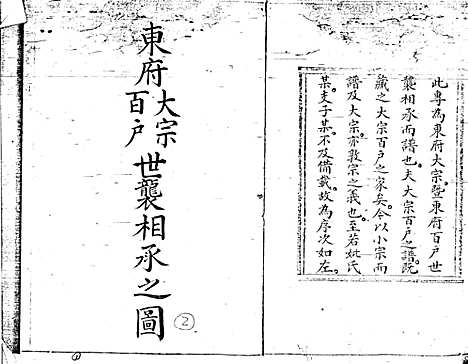 此專為東府大宗暨東府百戶世
襲相承而譜也夫大宗百戶之譜既
藏之大宗百戶之家矣今以小宗而
譜及大宗亦敦宗之義也至若妣氏
某支子某不及備載故為序次如左
東府大宗百戶世襲相承之圖
2
1